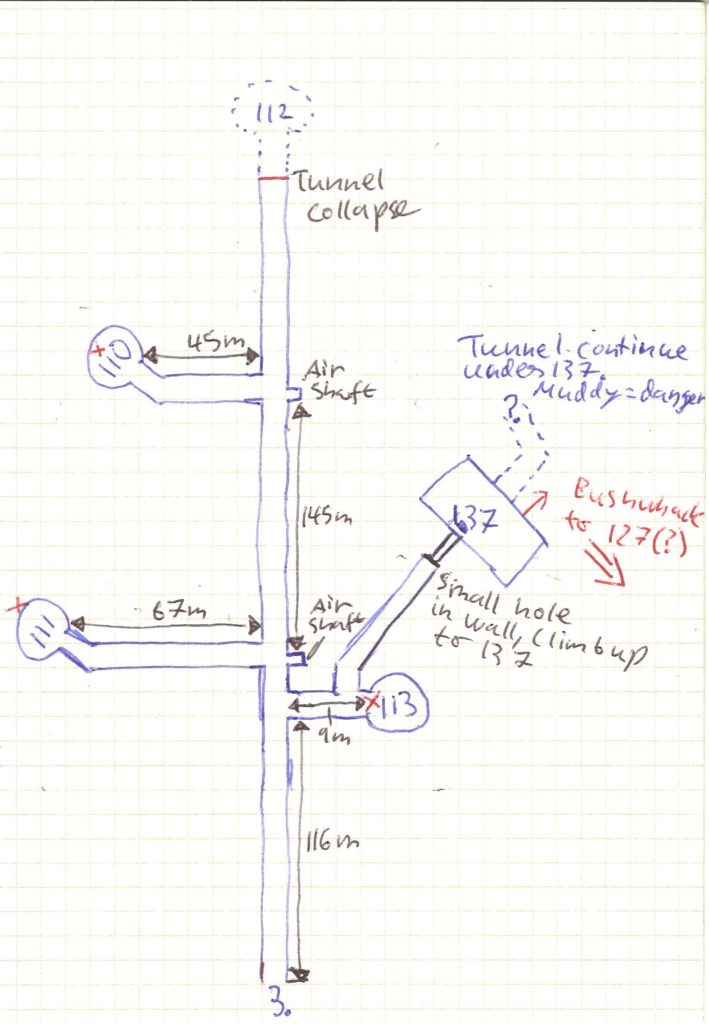 112
Tunnel
collapse
45m
110
Air
shaft
Tunnel continue
under 137.
Muddy=danger
?
137
Bushwhack
to 127(?)
145m
Small hole
in wall, Climb up
to 137
67m
111
Air
shaft
113
9m
116m
3.